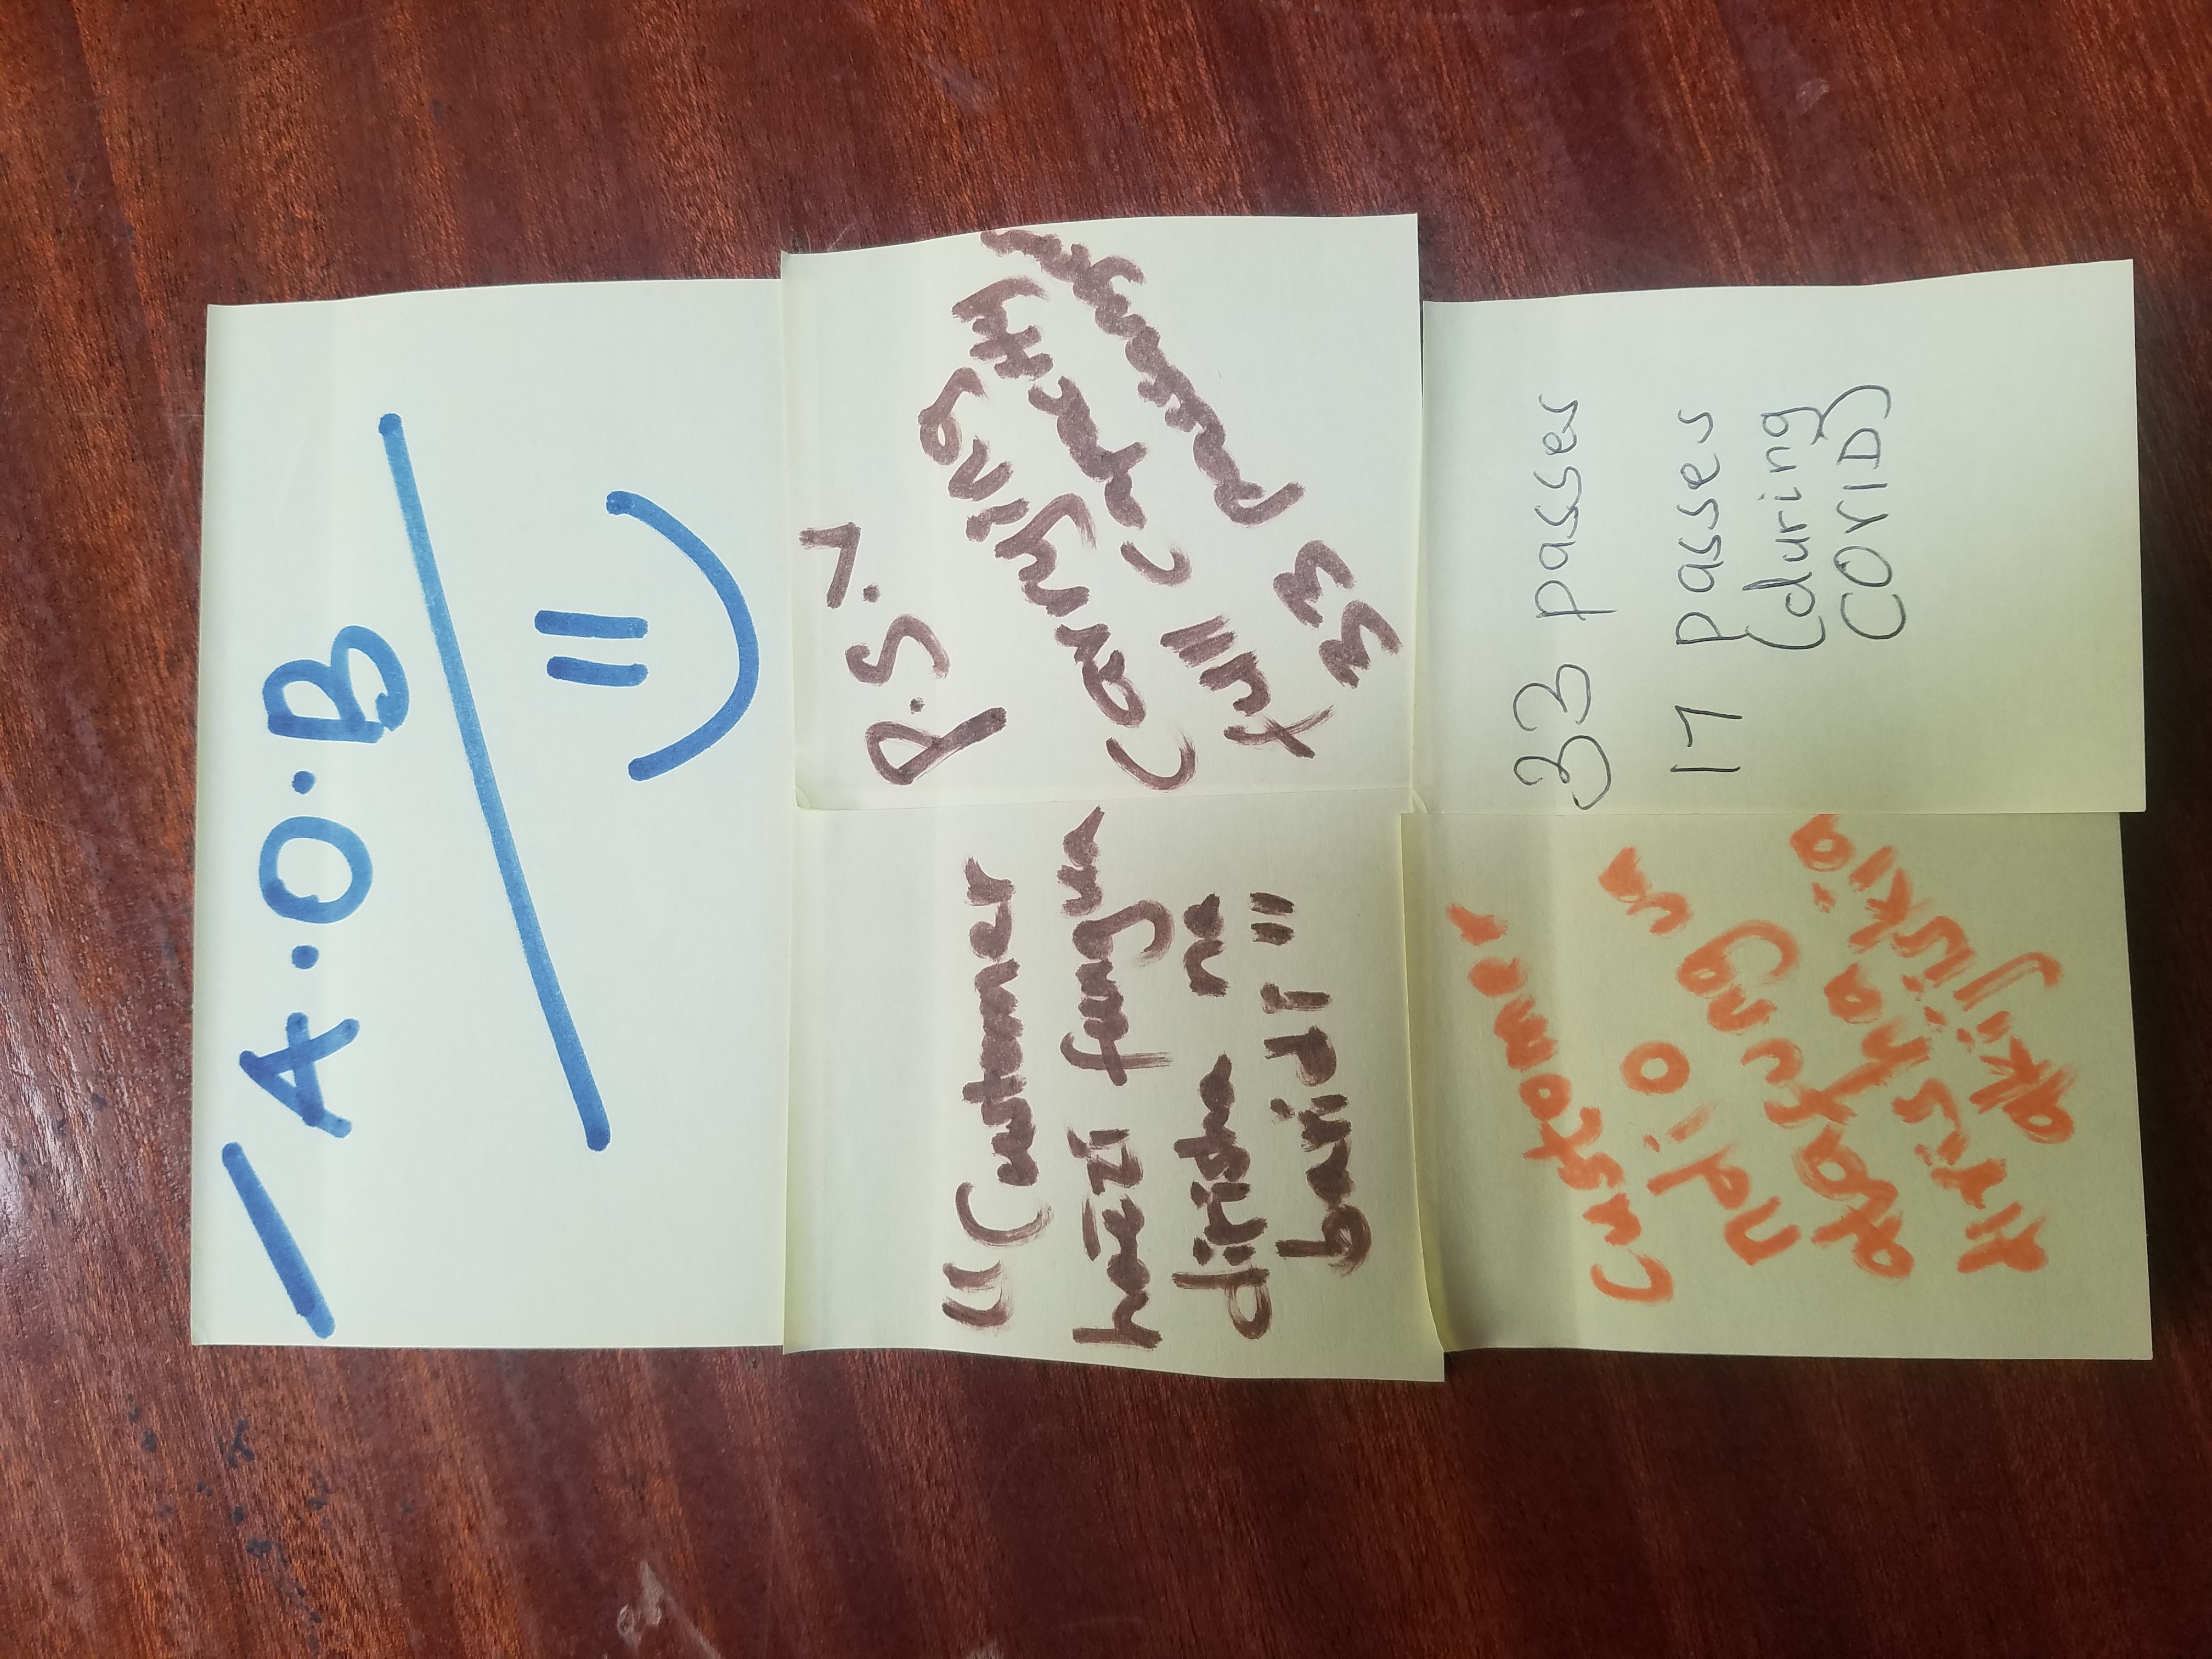 A.O.B
"Customer
haezi fungua
dirisha na
baridi"
P.S.V
Carrying
full capacity
33 passangers
Customer
ndio
atafungua
dirisha
akijiskia
33 passes
17 passes
(during
COVID)